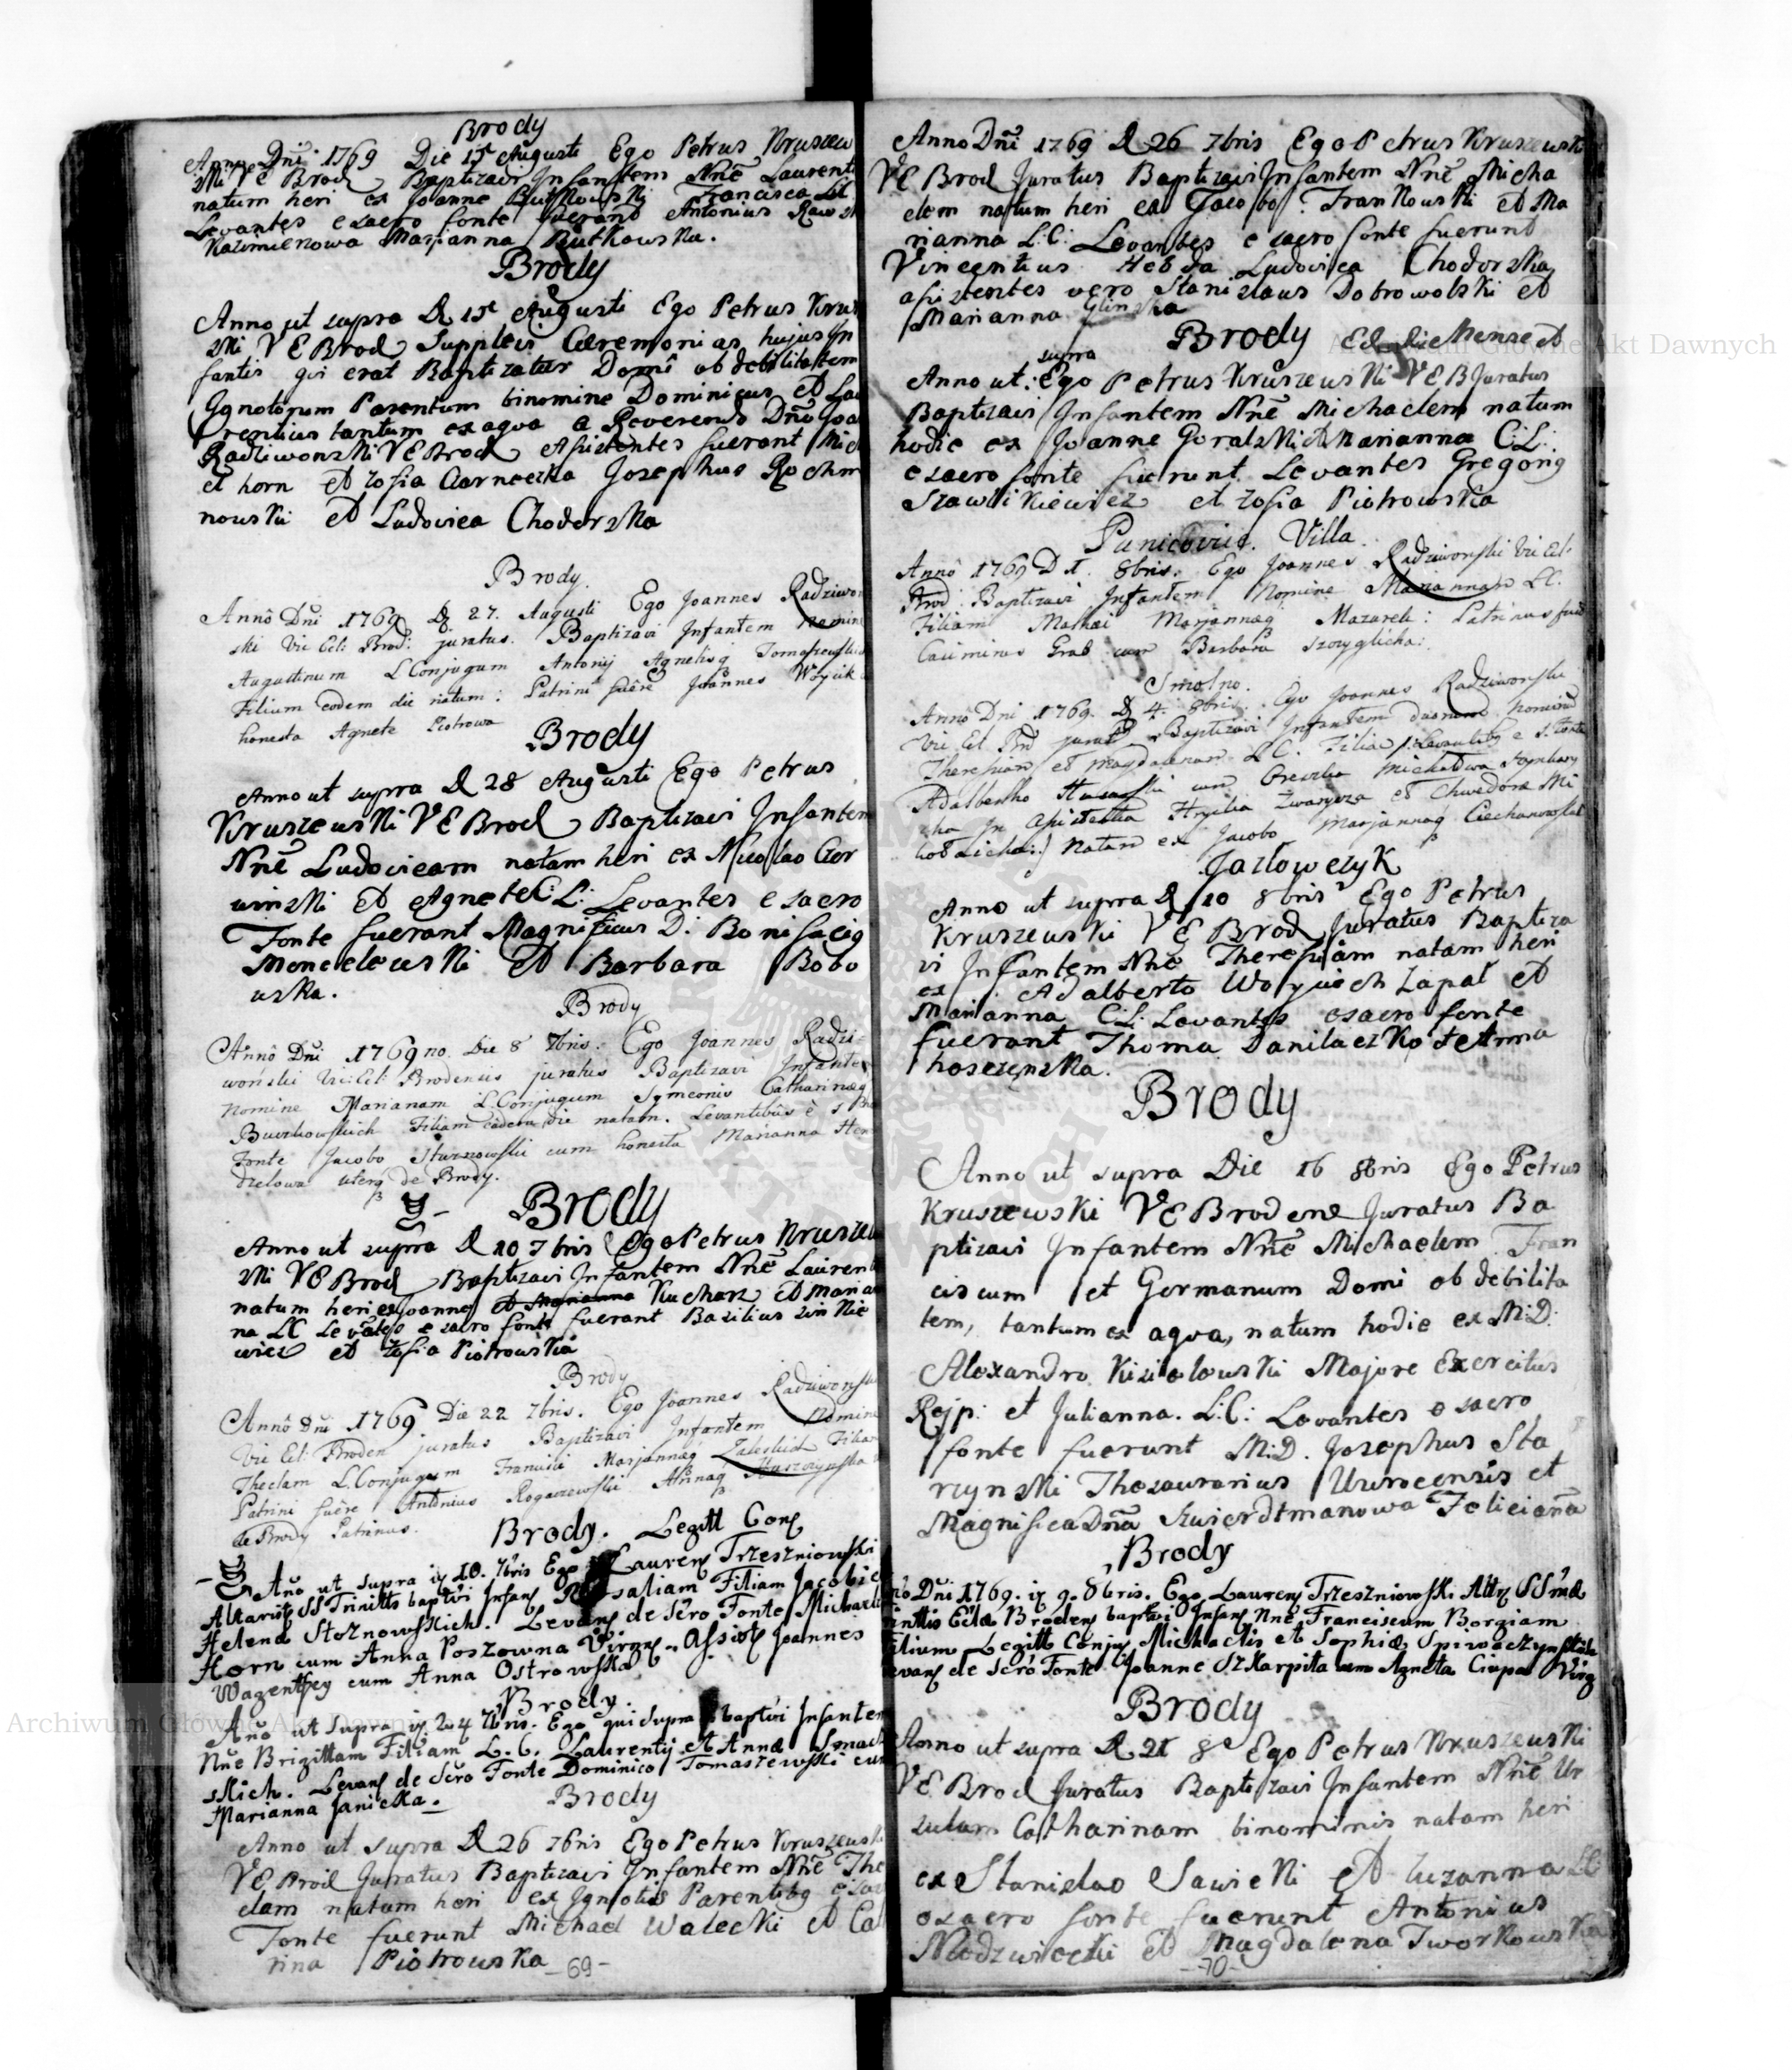 Brody
Anno Dni 1769 Die 15 Augusti Ego Petrus Kruszew
ski VE Brod Baptizavi Infantem Nne Laurenti
natum heri ex Joanne Francisca LC
Levantes e sacro fonte fuerant Antonius
Kazimierowa Marjanna Rutkowska.
Brody
Anno ut supra D 15 Augusti Ego Petrus Krus
ski VE Brod Supplevi Ceremonias hujus In
fantis qui erat Baptizatus Domi ob debilitatem
Ignotorum Parentum binomine Dominicus et Lau
rentius tantum ex aqva a Reverendo Dno Joa
Radziwonski VE Brod Assistentes fuerant Mich
el horn et Zofia Czarnecka Josephus Rochm
nowski et Ludovica Chodorska
Brody.
Anno Dni 1769 D 27. Augusti Ego Joannes Radziwon
ski Vic Ecl: Brod: juratus. Baptizavi Infantem nomine
Augustinum L Conjugum Antonij Agnetisq Tomaszewskich
Filium eodem die natum: Patrini fuere Joannes Woycik
honesta Agnete Piotrowa
Brody
Anno ut supra D 28 Augusti Ego Petrus
Kruszewski VE Brod Baptizavi Infantem
Nne Ludovicam natam heri ex Nicolao Czer
winski et Agnete C: L: Levantes e sacro
Fonte fuerant Magnificus D: Bonifacig
Mencelewski et Barbara Bobo
wska.
Brody
Anno Dni 1769no. Die 8 7bris. Ego Joannes Radzi=
wonski Vic: Ecl: Brodensis juratus Baptizavi Infante
nomine Marianam L Conjugum Symeonis Catharinaeq
Buczkowskich Filiam eadem die natam. Levantibus è S
Fonte Jacobo Sturnowski cum honesta Marianna Hen
drelowa uterq de Brody.
Brody
Anno ut supra D 10 7bris Ego Petrus Krusze
ski VE Brod Baptizavi Infantem Nne Lauren
natum heri ex Joanne et Marianna Kucharz et Marian
na LC Levates e sacro fonte fuerant Basilius
wicz et Zofia Piotrowska
Brody
Anno Dni 1769 Die 22 7bris. Ego Joannes Radziwonski
Vic Ecl: Broden juratus Baptizavi Infantem Nomine
Theclam L. Conjugum Francisci Marjannaeq Zaleskich Filiam
Patrini fuere Antonius Rogaszewski Annaq
de Brody Patrinus.
Brody. Legitt Conj
Ano ut supra 10. 7bris Ego Laurens Trzeszniowski
Altarista SS Trinittis baptvi Infans Rosaliam Filiam Jacobi et
Helena Stoznowskich. Levans de Scro Fonte Michaele
Horn cum Anna Poszowna Virgns. Assists Joannes
Wagenthey cum Anna Ostrowska
Brody.
Ano ut Supra 24 7bris. Ego qui supra baptvi Infantem
Nne Brigittam Filiam L. C. Laurentij et Anna
skich. Levans de Scro Fonte Dominico Tomaszewski cum
Marianna Janicka.
Brody
Anno ut supra D 26 7bris Ego Petrus Kruszewsk
VE Brod Juratus Baptizavi Infantem Nne The
clam natam heri ex Ignotis Parentibg e sac
Fonte fuerunt Michael Walecki et Cat
rina Piotrowska
- 69 -
Anno Dni 1769 D 26 7bris Ego Petrus Kruszewski
VE Brod Juratus Baptizavi Infantem Nne Micha
elem natum heri ex Jacobo Frankowski et Ma
rianna L: C: Levantes e sacro fonte fuerunt
Vincentius Hebda Ludovica Chodorska
assistentes vero Stanislaus Dobrowolski et
Marianna Glinska
Brody Eadem die Mense et
supra
Anno ut: Ego Petrus Kruszewski VE B Juratus
Baptizavi Infantem Nne Michaelem natum
hodie ex Joanne Goralski et Marianna C: L:
e sacro fonte fuerunt Levantes Gregorig
Szawlikiewicz et Zofia Piotrowska
Villa
Anno 1769 D 1. 8bris. Ego Joannes Radziwonski Vic Ecl:
Brod Baptizavi Infantem Nomine Mariannam LC.
Filiam Mathai Marjannaeq Mazurek: Patrinus fuit
Casimirus Grab cum Barbara
Smolno.
Anno Dni 1769. D 4. 8bris. Ego Joannes Radziwonski
Vic Ecl Brd jurat Baptizavi Infantem duarum nominum
Theresiam et Magdalenam L C. Filia: Levantibg e S. Fonte
Adalberto cum Michalowa
In Assistentia et Chwedora
Natam ex Jacobo Marjannaeq Ciechanowskich
Jazlowczyk
Anno ut supra D 10 8bris Ego Petrus
Kruszewski VE Brod Juratus Baptiza
vi Infantem Nne Theresiam natam heri
ex Adalberto Woyciech Zapal et
Marianna C: L: Levantes e sacro fonte
fuerant Thoma Danilaczko et Anna
hoszczynska.
Brody
Anno ut supra Die 16 8bris Ego Petrus
Kruszewski VE Brodene Juratus Ba
ptizavi Infantem Nne Michaelem Fran
ciscum et Germanum Domi ob debilita
tem, tantum ex aqva, natum hodie ex M: D:
Alexandro Kisielowski Majore Exercitus
Rejp: et Julianna. L: C: Levantes e sacro
fonte fuerunt M: D. Josephus Sta
rzynski Thesaurarius Uwrocensis et
Magnifica Dna Szwierdtmanowa Feliciana
Brody
no Dni 1769. 9. 8bris. Ego Laurens Trzeszniowski Altrs SSmae
inittis Eclae Brodens baptvi Infans Nne Franciscum Borgiam
Filium Legitt Conjus Michaelis et Sophiae Spiwaczynskich
evans de Scro Fonte Joanne Szkarpita cum Agneta Ciupa Virg
Brody
Anno ut supra D 21 8 Ego Petrus Kruszewski
VE Brod Juratus Baptizavi Infantem Nne Ur
sulam Catharinam binominis natam heri
ex Stanislao Sawicki et Zuzanna LC
e sacro fonte fuerunt Antonius
Niedzwiecki et Magdalena Tworkowska
- 70 -
Archiwum Główne Akt Dawnych
Archiwum Główne Akt Dawnych